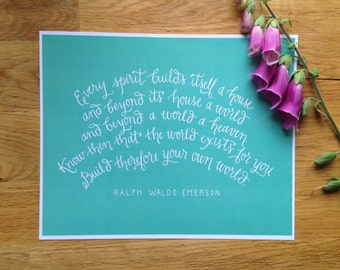 Every spirit builds itself a house
and beyond its house a world
and beyond a world a heaven
Know then that the world exists for you
Build therefore your own world
RALPH WALDO EMERSON